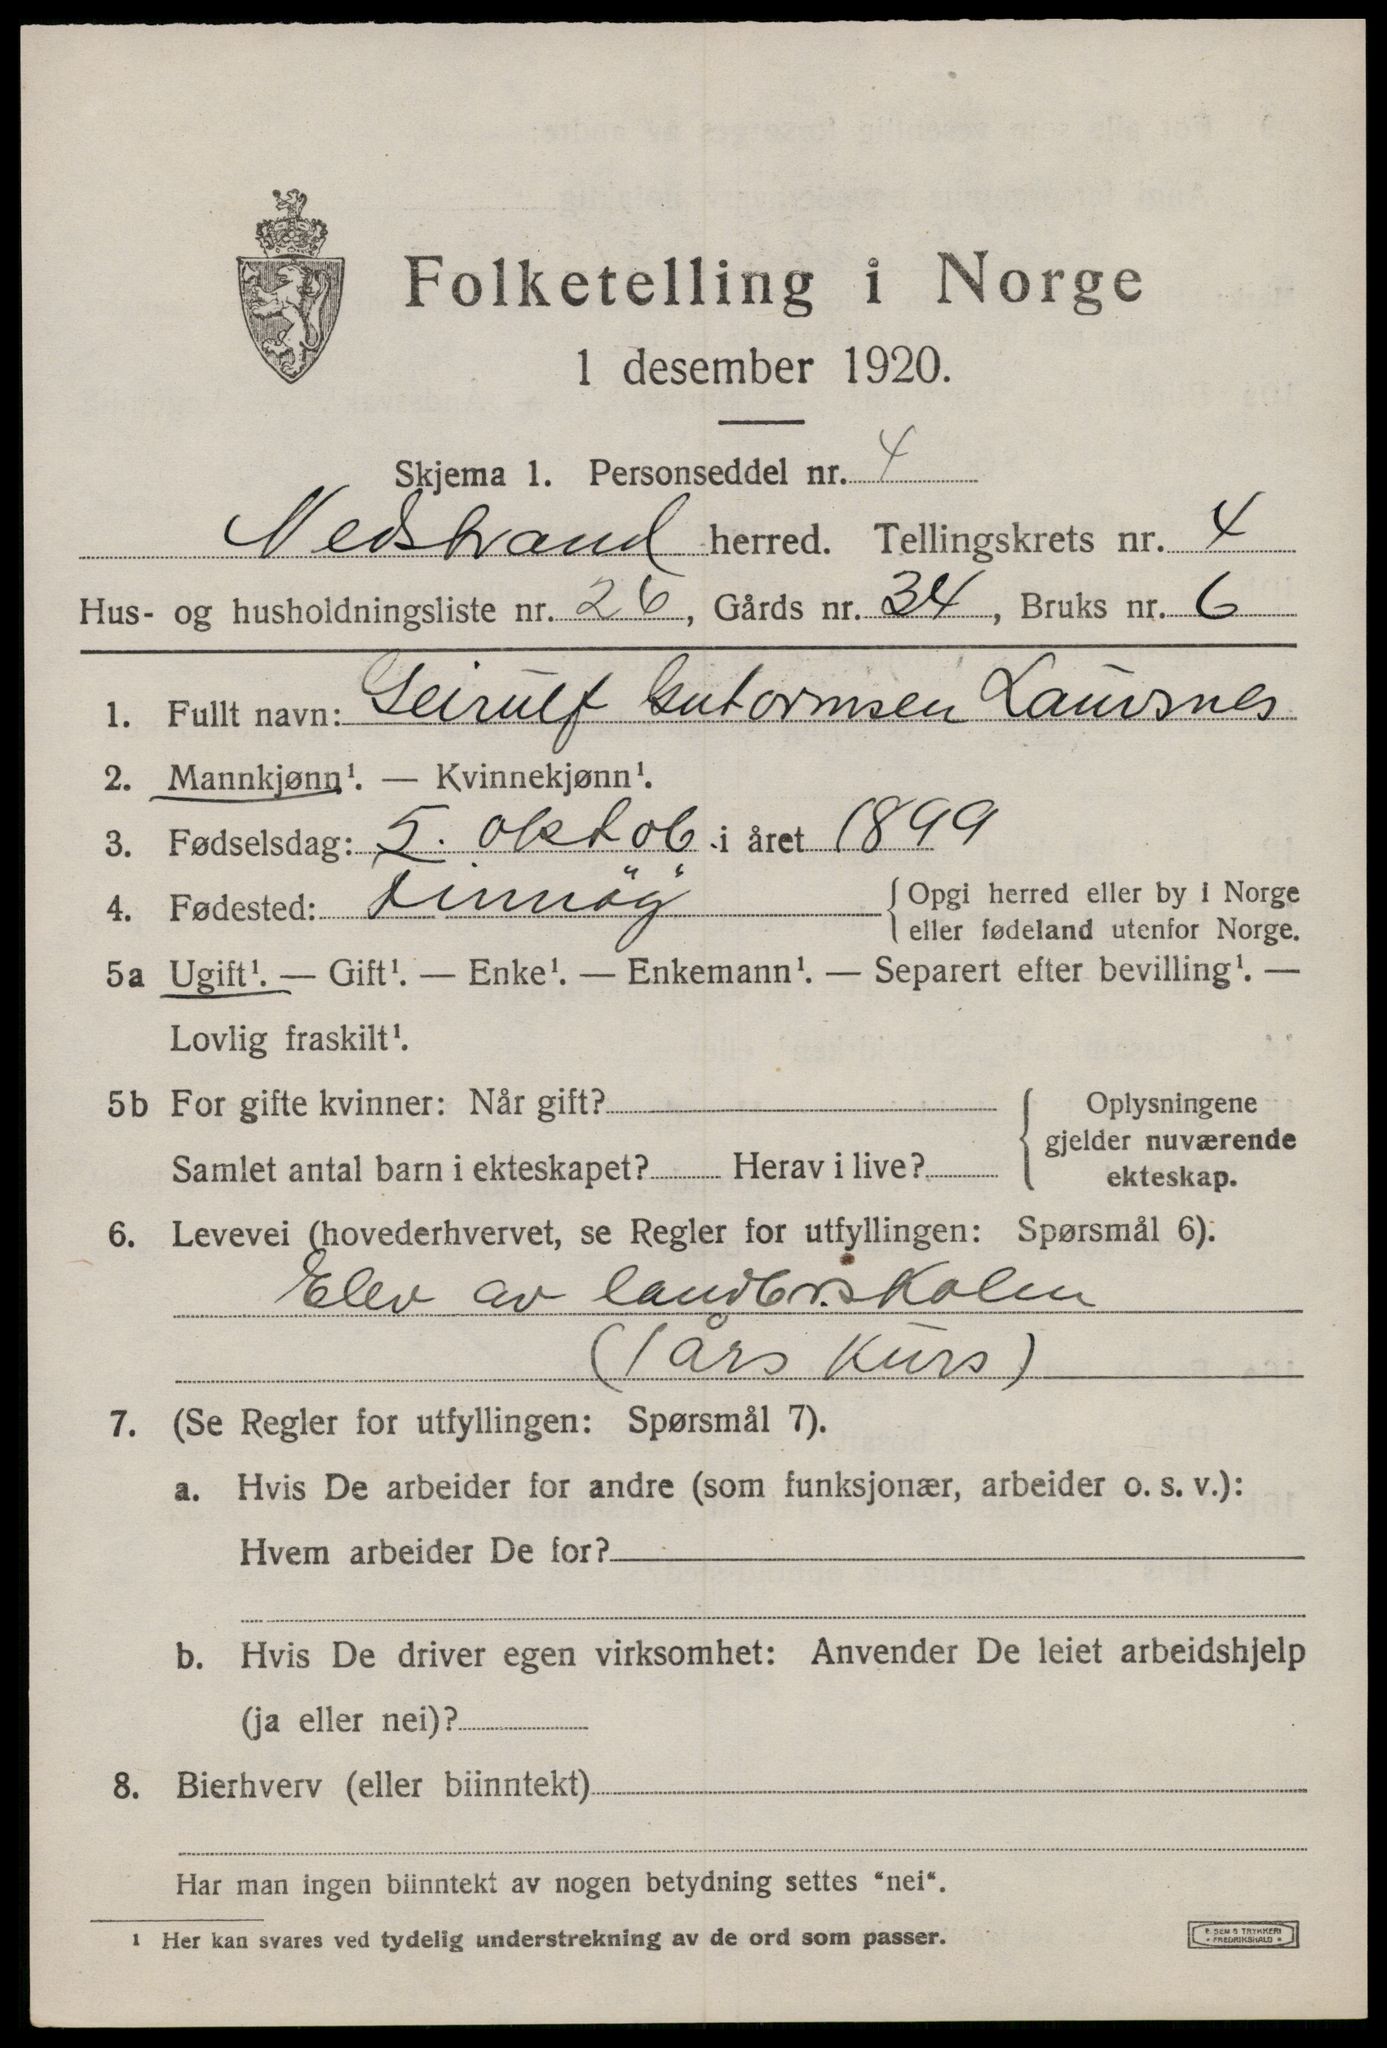 Folketelling i Norge
1 desember 1920.
Skjema 1. Personseddel nr. 4
Nedstrand herred. Tellingskrets nr. 4
Hus- og husholdningsliste nr. 26, Gårds nr. 34, Bruks nr. 6
1. Fullt navn: Geirulf Gutormsen Laursnes
2. Mannkjønn¹. — Kvinnekjønn¹.
3. Fødselsdag: 5. oktob i året 1899
4. Fødested: Finnöy { Opgi herred eller by i Norge
eller fødeland utenfor Norge.
5a Ugift¹. — Gift¹. — Enke¹. — Enkemann¹. — Separert efter bevilling¹. —
Lovlig fraskilt¹.
5b For gifte kvinner: Når gift? { Oplysningene
gjelder nuværende
Samlet antal barn i ekteskapet? Herav i live? ekteskap.
6. Levevei (hovederhvervet, se Regler for utfyllingen: Spørsmål 6).
Elev av landbr.skolen
(1 års kurs)
7. (Se Regler for utfyllingen: Spørsmål 7).
a. Hvis De arbeider for andre (som funksjonær, arbeider o. s. v.):
Hvem arbeider De for?
b. Hvis De driver egen virksomhet: Anvender De leiet arbeidshjelp
(ja eller nei)?
8. Bierhverv (eller biinntekt)
Har man ingen biinntekt av nogen betydning settes “nei“.
¹ Her kan svares ved tydelig understrekning av de ord som passer.
E. SEM S TRYKKERI
* FREDRIKSHALD *